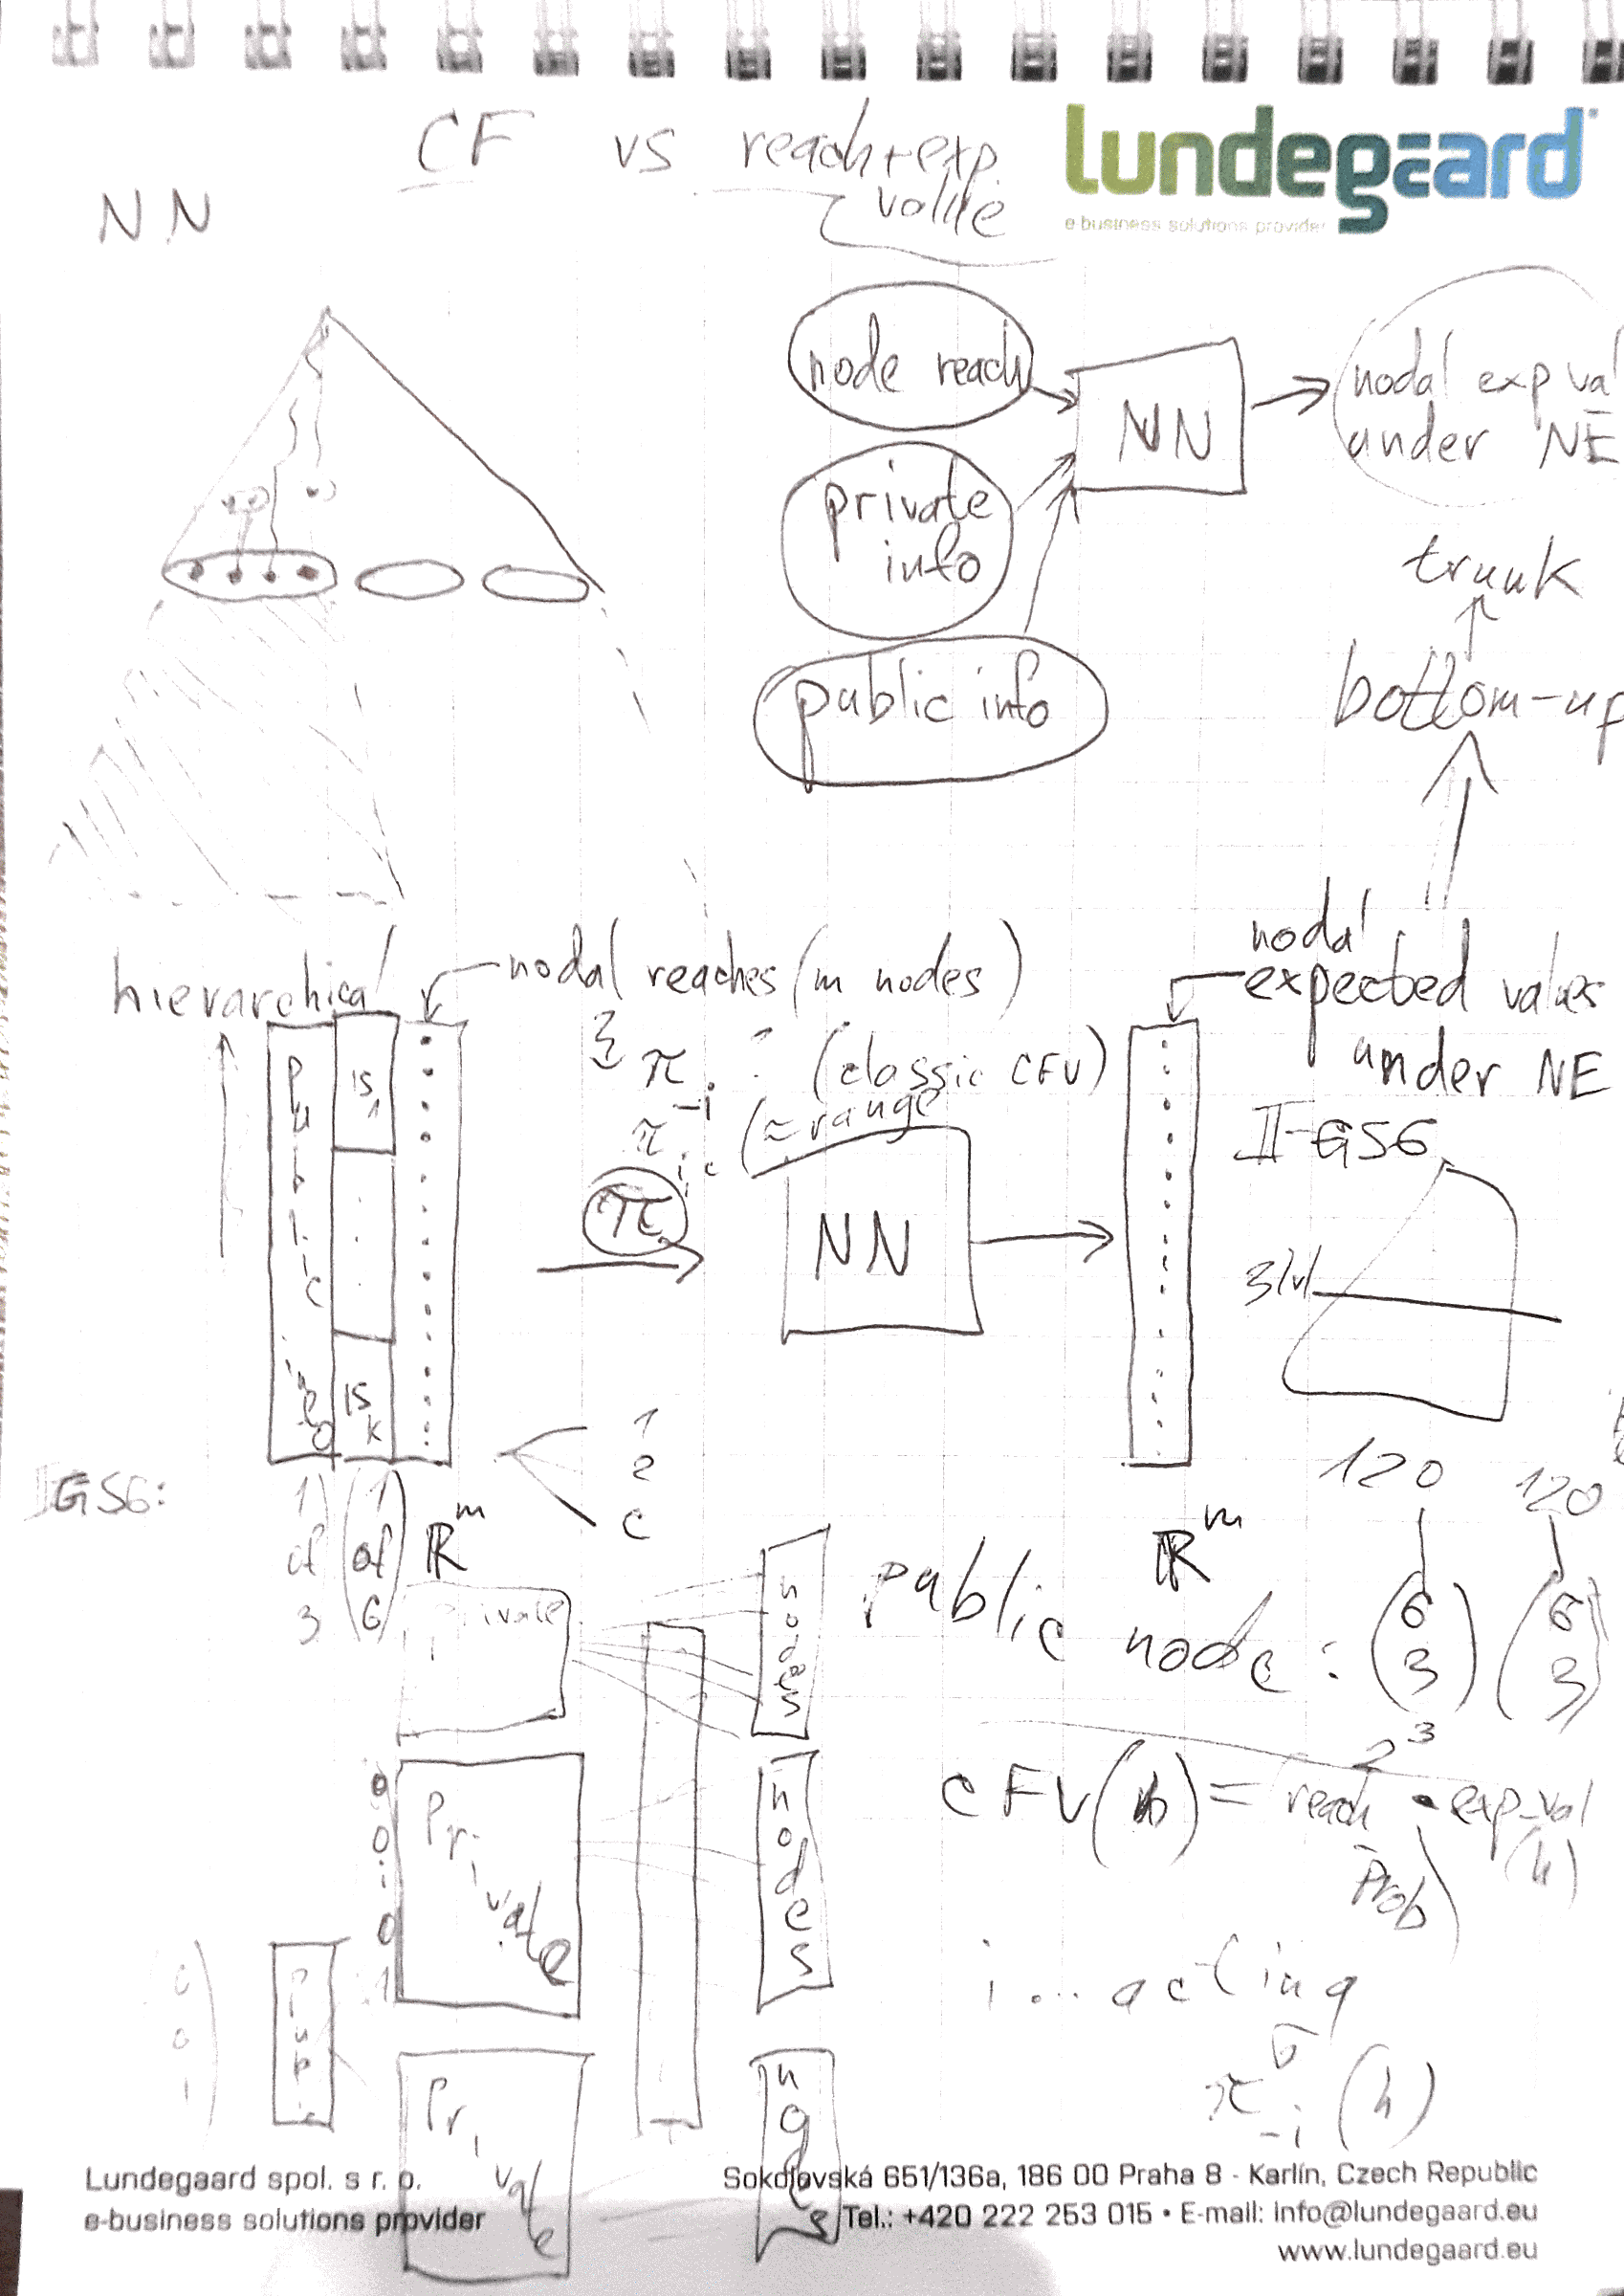 CF vs reach+exp.
value
lundegaard
e business solutions provider
NN
node reach
private
info
public info
NN
nodal exp val
under NE
trunk
bottom-up
hierarchical
nodal reaches (m nodes)
nodal
expected values
under NE
(classic CFV)
π-i (≈range
π
public info
IS1
ISk
NN
II-GS6
3lvl
1
2
c
II-GS6:
1 of 3
(1 of 6)
ℝm
ℝm
120 120
public
node: (6 3) (6 3)
23
Private
nodes
CFV(h) = reach • exp_val
prob (h)
0
0
0
1
Private
nodes
public
i... acting
πσ-i (h)
Private
nodes
Lundegaard spol. s r. o.
e-business solutions provider
Sokolovská 651/136a, 186 00 Praha 8 - Karlín, Czech Republic
Tel.: +420 222 253 015 • E-mail: info@lundegaard.eu
www.lundegaard.eu